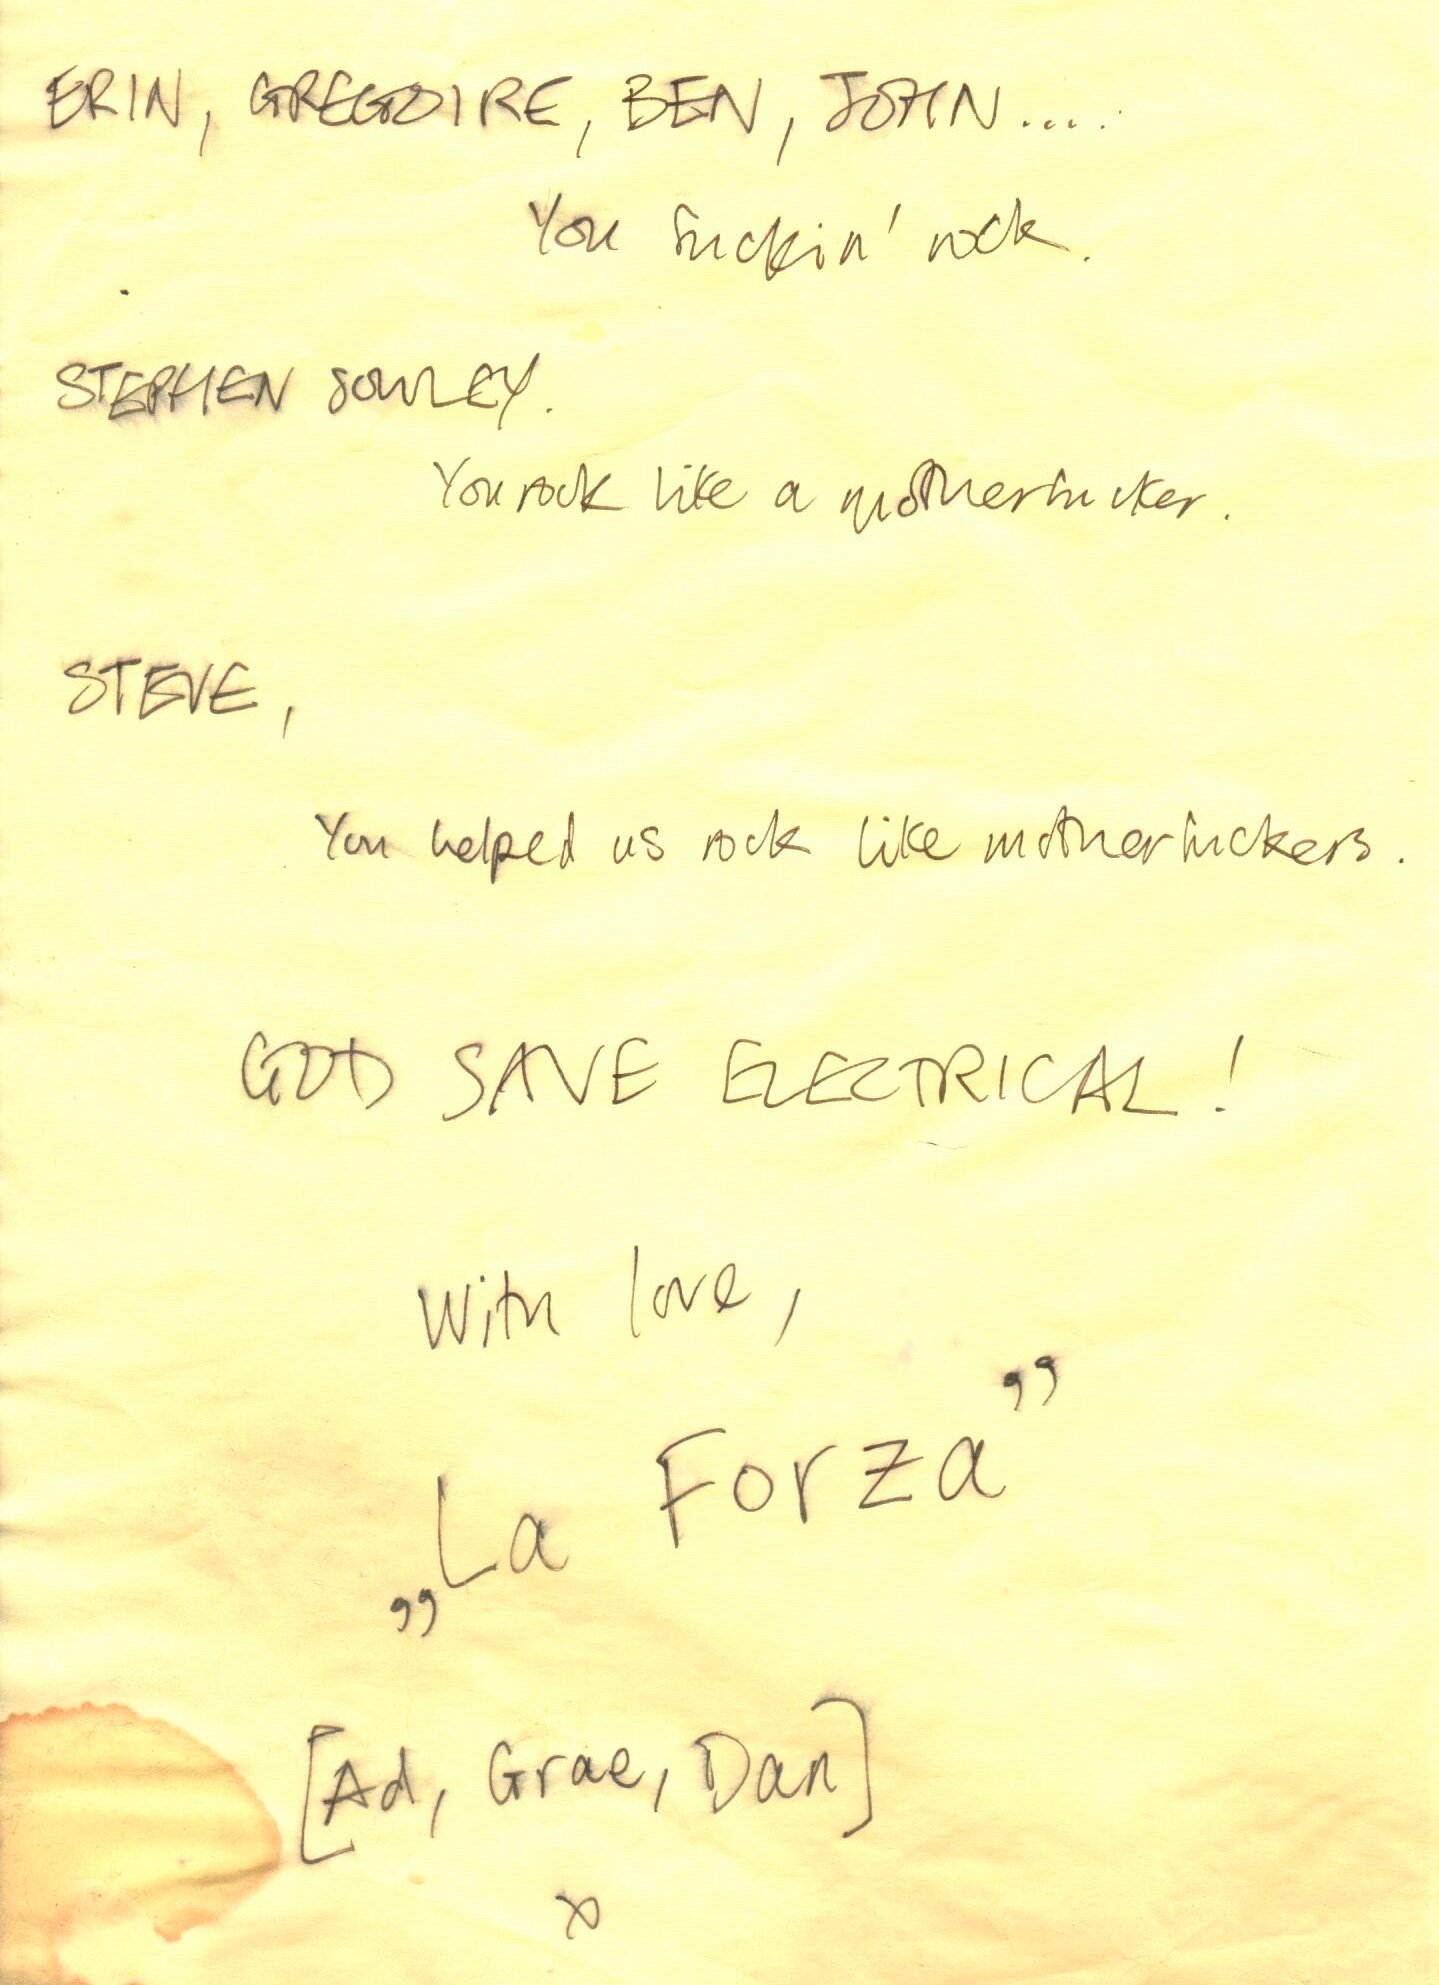 ERIN, GREGOIRE, BEN, JOHN.....
You fuckin' rock.
STEPHEN SOWLEY.
You rock like a motherfucker.
STEVE,
You helped us rock like motherfuckers.
GOD SAVE ELECTRICAL!
With love,
„La Forza”
[Ad, Grae, Dan]
x